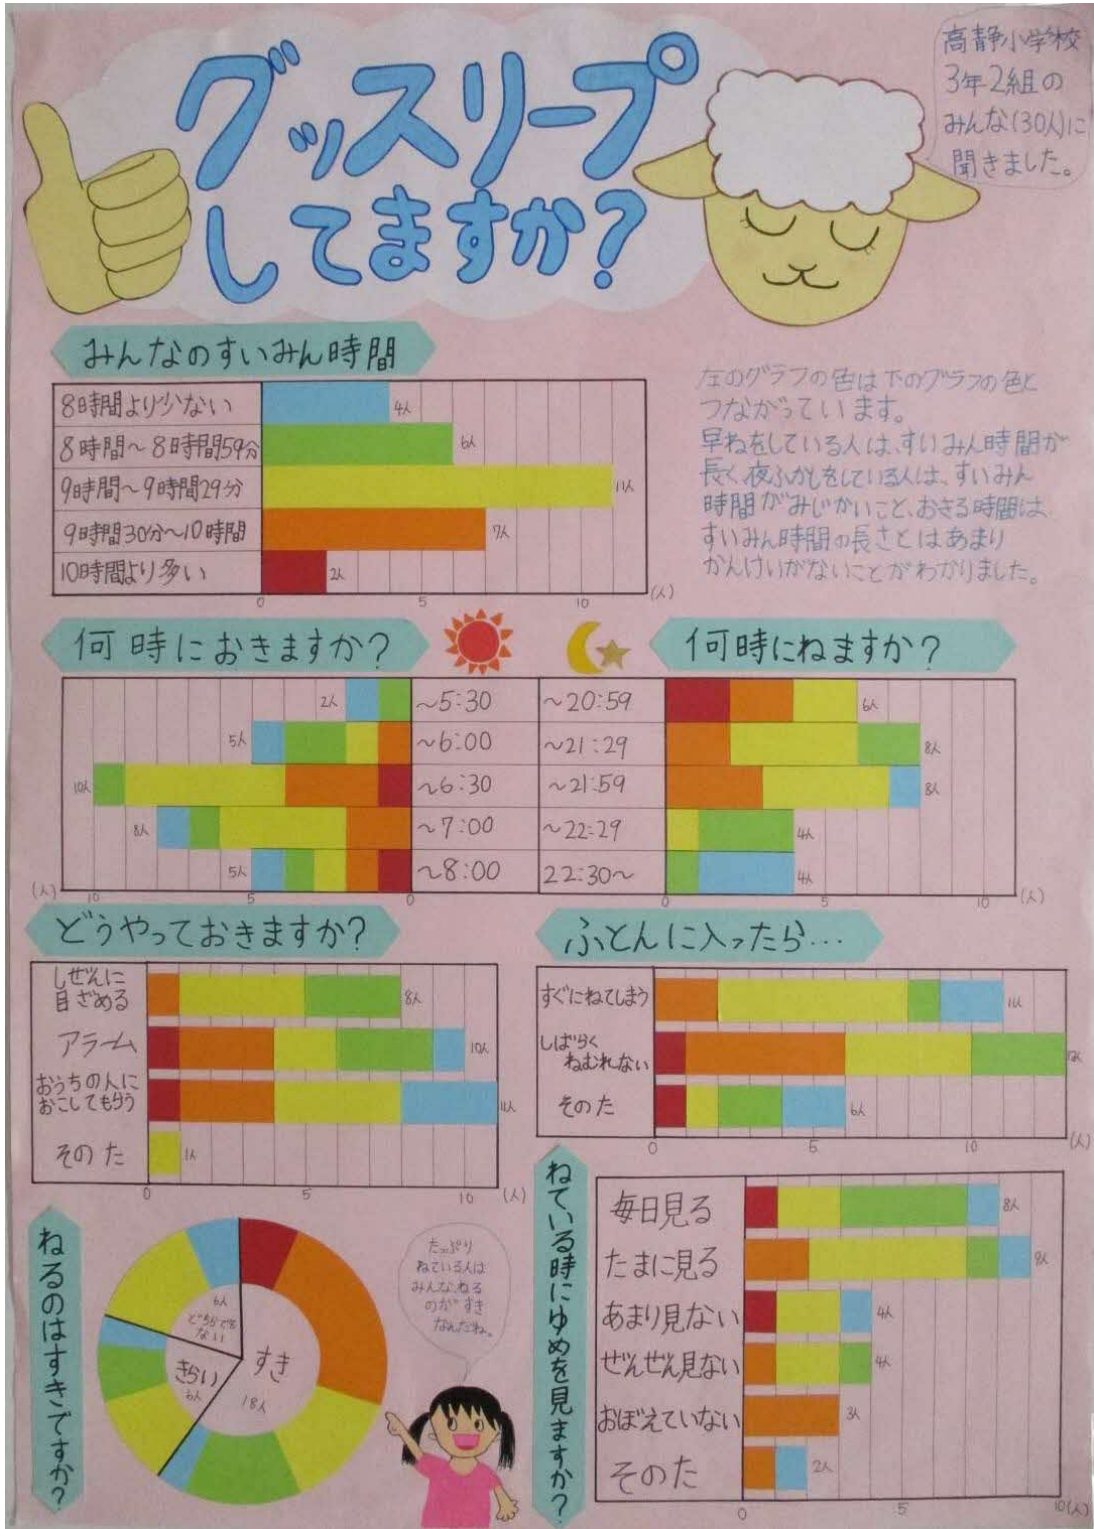 グッスリープ
してますか?
高静小学校
3年2組の
みんな(30人)に
聞きました。
みんなのすいみん時間
8時間より少ない
4人
8時間～8時間59分
6人
9時間～9時間29分
11人
9時間30分～10時間
7人
10時間より多い
2人
0 5 10 (人)
左のグラフの色は下のグラフの色と
つながっています。
早ねをしている人は、すいみん時間が
長く、夜ふかしをしている人は、すいみん
時間がみじかいこと、おきる時間は、
すいみん時間の長さとはあまり
かんけいがないことがわかりました。
何時におきますか?
2人 ～5:30
5人 ～6:00
10人 ～6:30
8人 ～7:00
5人 ～8:00
(人) 10 5 0
何時にねますか?
～20:59 6人
～21:29 8人
～21:59 8人
～22:29 4人
22:30～ 4人
5 10 (人)
どうやっておきますか?
しぜんに
目ざめる
8人
アラーム
10人
おうちの人に
おこしてもらう
11人
そのた
1人
0 5 10 (人)
ふとんに入ったら…
すぐにねてしまう
11人
しばらく
ねむれない
そのた
6人
0 5 10 (人)
ねるのはすきですか?
すき
18人
きらい
6人
どちらでも
ない
たっぷり
ねている人は
みんなねる
のがすき
なんだね。
ねている時にゆめを見ますか?
毎日見る
8人
たまに見る
9人
あまり見ない
4人
ぜんぜん見ない
4人
おぼえていない
3人
そのた
2人
0 5 10(人)